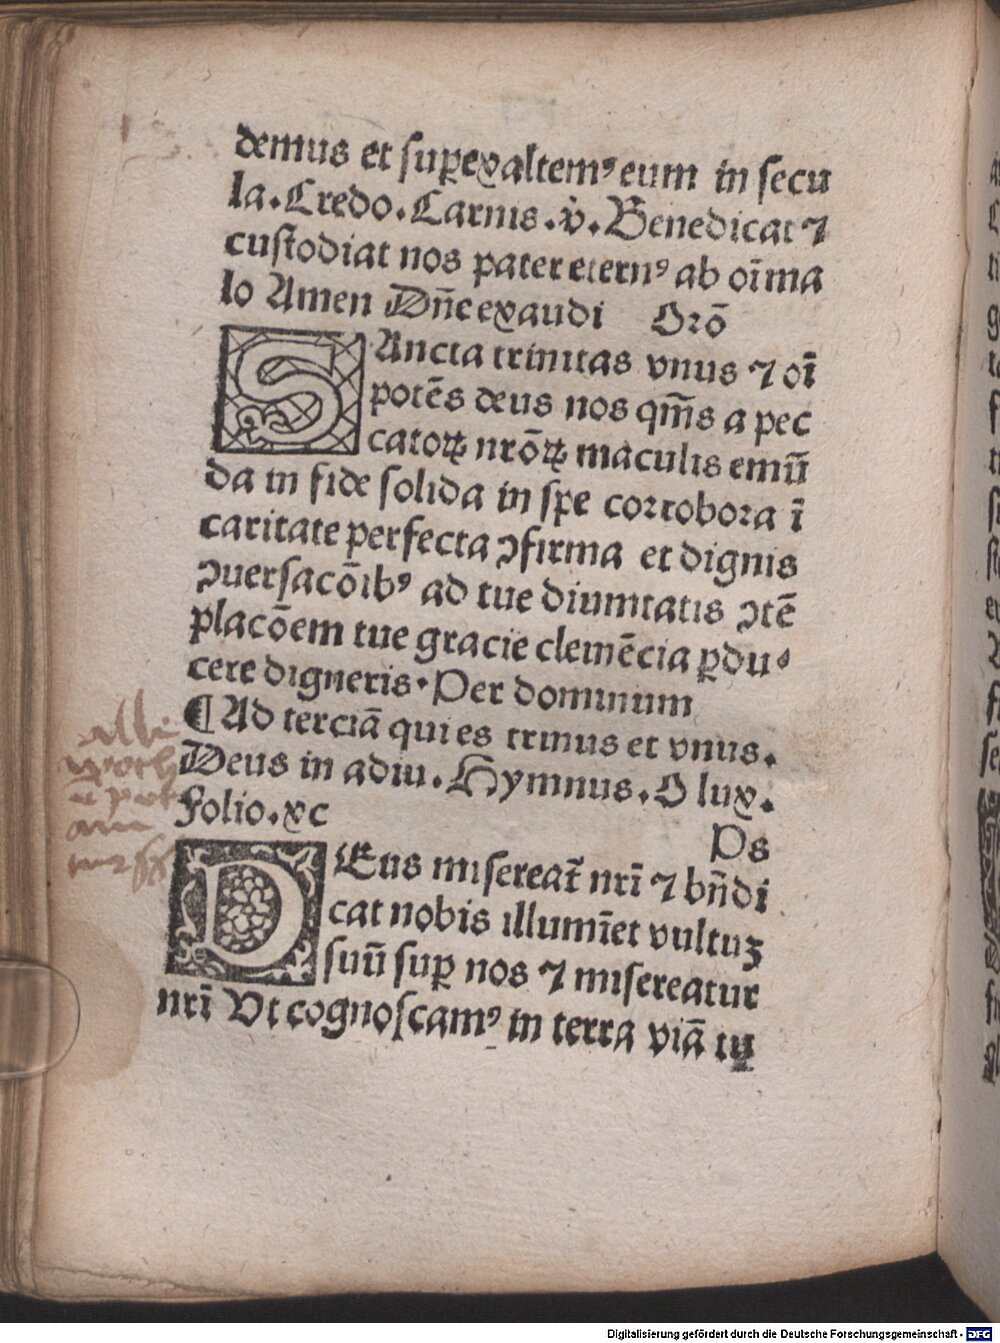 demus et suꝑexaltemꝰ eum in secu
la. Credo. Carnis. v̇. Benedicat ⁊
custodiat nos pater eternꝰ ab oi̅ ma
lo Amen Dn̄e exaudi Orō
SAncta trinitas vnus ⁊ oi̅
potēs deus nos qm̄s a pec
catoꝝ nrōꝝ maculis emūn
da in fide solida in spe corrobora ī
caritate perfecta ꝯfirma et dignis
ꝯuersacōibꝰ ad tue diuinitatis ꝯtē
placōem tue gracie clemēcia ꝑdu⸗
cere digneris. Per dominum
¶ Ad terciā qui es trinus et vnus.
Deus in adiu. Hymnus. O lux.
folio. xc
Ps
DEus misereat̄ nrī ⁊ bn̄di
cat nobis illumīet vultuꝫ
suū suꝑ nos ⁊ misereatur
nrī Vt cognoscamꝰ in terra viā tu
Digitalisierung gefördert durch die Deutsche Forschungsgemeinschaft - DFG